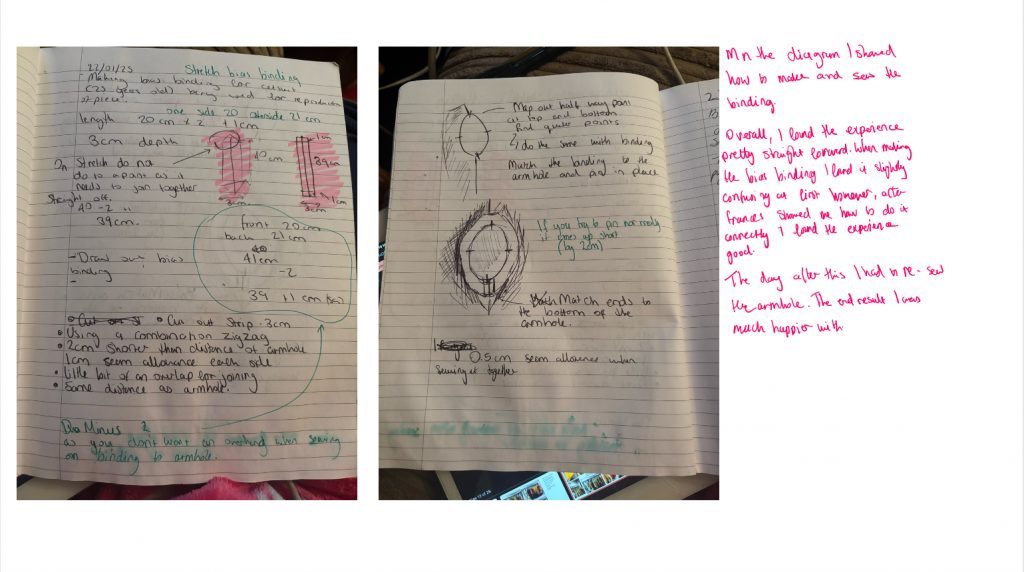 22/01/25 Stretch bias binding
- Making bias binding for
being used for
of piece.
one side 20 21 cm
length 20 cm x 2 + 1cm
3cm depth
On Stretch do not
do to a part as it
needs to join together
Straight off.
40 - 2
39cm.
40 cm
3cm
1cm
39cm
1cm
3cm
front 20cm
back 21cm
40
41cm
-2
39 +1 cm
- Draw out bias
binding
-
• Cut out Strip . 3cm
• Using a combination zigzag
• 2cm shorter than distance of armhole
1cm seam allowance each side
• Little bit of an overlap for joining
• Same distance as armhole.
Minus 2
as you don't want an overhang when sewing
on binding to armhole.
Map out half way point
at top and bottom
find quater points
do the same with binding
Match the binding to the
armhole and pin in place
If you try to pin normally
it comes up short
(by 2cm)
Match ends to
the bottom of the
armhole.
0.5cm seam allowance when
sewing it together
the diagram I shared
how to make and sew the
binding.
Overall, I found the experience
pretty straight forward. When making
the bias binding I found it slightly
confusing at first however, after
Frances showed me how to do it
correctly I found the experience
good.
The day after this I had to re-sew
the armhole. The end result I was
much happier with